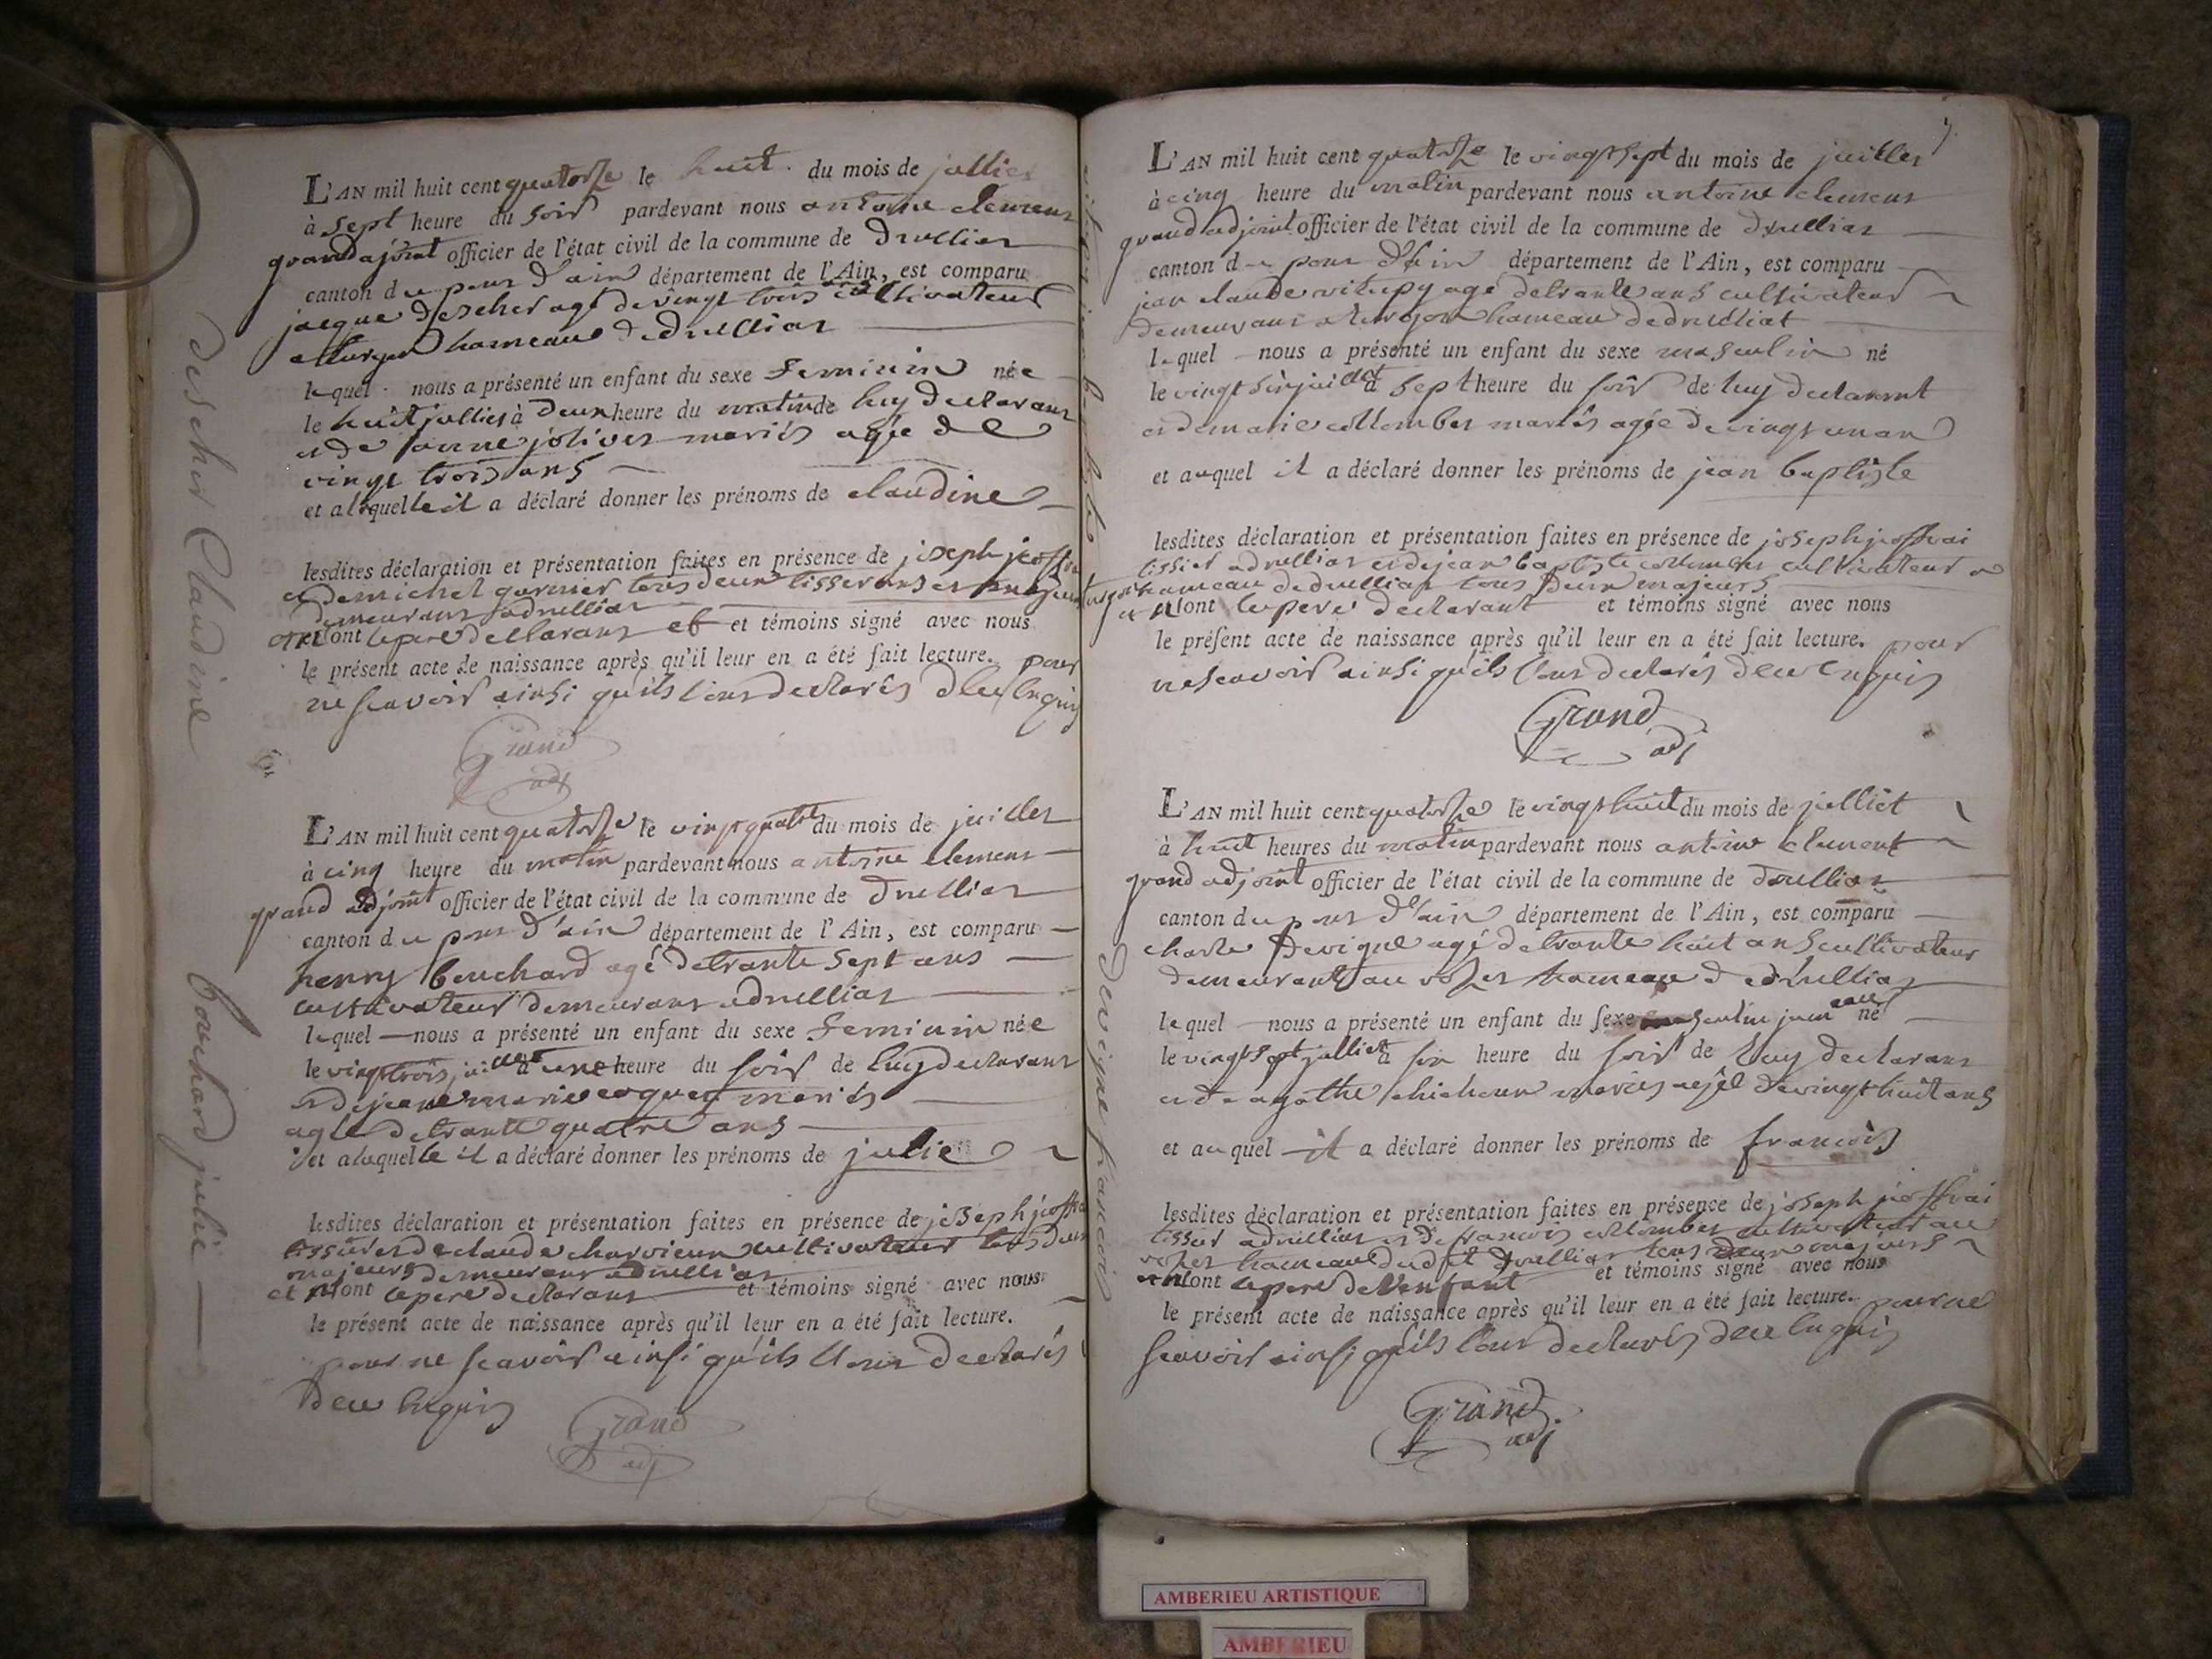 L'AN mil huit cent quatorze le huit du mois de jullier
à sept heure du soir pardevant nous antoine clemens
grand adjoint officier de l'état civil de la commune de druillias
canton du pons d'ain département de l'Ain, est comparu
jacque descher agé de vingt trois cultivateur
a turgon hameau de druillias
lequel nous a présenté un enfant du sexe feminin née
le huit jullies à deux heure du matin de luy declarans
et de jolives mariés agée de
vingt trois ans
et a laquelle il a déclaré donner les prénoms de claudine
lesdites déclaration et présentation faites en présence de joseph joffrai
et de michel garnier tous deux tisserans et majeurs
demeurans a druillias
et n'ont le pere declarans et et témoins signé avec nous
le présent acte de naissance après qu'il leur en a été fait lecture. pour
ne scavoir ainsi qu'ils l'ons declarés de ce enquis
Grand
adj
descher Claudine
L'AN mil huit cent quatorze le vingt quatre du mois de juilles
à cinq heure du matin pardevant nous antoine clemens
grand adjoint officier de l'état civil de la commune de druillias
canton du pons d'ain département de l'Ain, est comparu
henry bouchard agé de trante sept ans
cultivateur demeurans a druillias
lequel nous a présenté un enfant du sexe feminin née
le vingt trois juilles à une heure du soir de luy declarans
et de jeane marie coques mariés
agée de trante quatre ans
et a laquelle il a déclaré donner les prénoms de julie
lesdites déclaration et présentation faites en présence de joseph joffra
tissier et de claude charvieux cultivateur tous deux
majeurs demeurans a druillias
et n'ont le pere declarans et témoins signé avec nous
le présent acte de naissance après qu'il leur en a été fait lecture.
pour ne scavoir ainsi qu'ils l'ons declarés
de ce enquis
Grand
adj
bouchard julie
L'AN mil huit cent quatorze le vingt sept du mois de juilles
à cinq heure du matin pardevant nous antoine clemens
grand adjoint officier de l'état civil de la commune de druillias
canton du pons d'ain département de l'Ain, est comparu
jean claude vitupy agé de trante ans cultivateur
demeurans a turgon hameau de druillat
lequel nous a présenté un enfant du sexe masculin né
le vingt six juillet à sept heure du soir de luy declarant
et de marie collombes mariés agée de vingt un an
et auquel il a déclaré donner les prénoms de jean baptiste
lesdites déclaration et présentation faites en présence de joseph joffrai
tissier a druillias et de jean baptiste collombes cultivateur a
turgon hameau de druillias tous deux majeurs
et n'ont le pere declarant et témoins signé avec nous
le présent acte de naissance après qu'il leur en a été fait lecture. pour
ne scavoir ainsi qu'ils l'ons declarés de ce enquis
Grand
adj
L'AN mil huit cent quatorze le vingt huit du mois de julliet
à huit heures du matin pardevant nous antoine clement
grand adjoint officier de l'état civil de la commune de druillias
canton du pons d'ain département de l'Ain, est comparu
charle devigne agé de trante huit ans cultivateur
demeurant au hameau de druillias
lequel nous a présenté un enfant du sexe masculin jumeau né
le vingt sept julliet à six heure du soir de luy declarans
et de agathe chicheux mariés agée de vingt huit ans
et auquel il a déclaré donner les prénoms de francois
lesdites déclaration et présentation faites en présence de joseph joffrai
tissier a druillias et de francois collombes cultivateur au
hameau dudit druillias tous deux majeurs
et n'ont le pere de l'enfant et témoins signé avec nous
le présent acte de naissance après qu'il leur en a été fait lecture. pour ne
scavoir ainsi qu'ils l'ons declarés de ce enquis
Grand
adj
devigne francois
AMBERIEU ARTISTIQUE
AMBERIEU